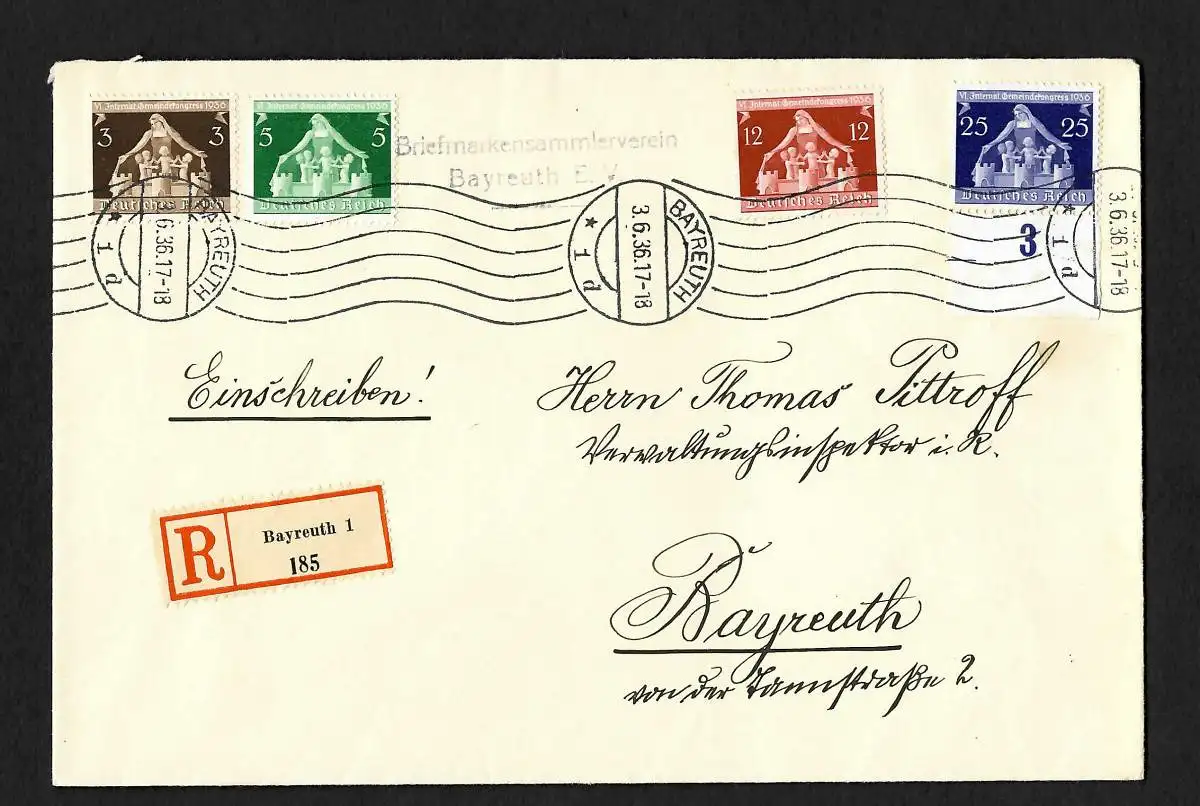 VI. Internat. Gemeindekongress 1936
3 3
Deutsches Reich
VI. Internat. Gemeindekongress 1936
5 5
Deutsches Reich
Briefmarkensammlerverein
Bayreuth E. V.
VI. Internat. Gemeindekongress 1936
12 12
Deutsches Reich
VI. Internat. Gemeindekongress 1936
25 25
Deutsches Reich
3
BAYREUTH
6.36.17-18
* 1 d
BAYREUTH
3.6.36.17-18
* 1 d
3.6.36.17-18
* 1 d
Einschreiben!
Herrn Thomas Pittroff
Verwaltungsinspektor i. R.
R
Bayreuth 1
185
Bayreuth
von der Tannstraße 2.